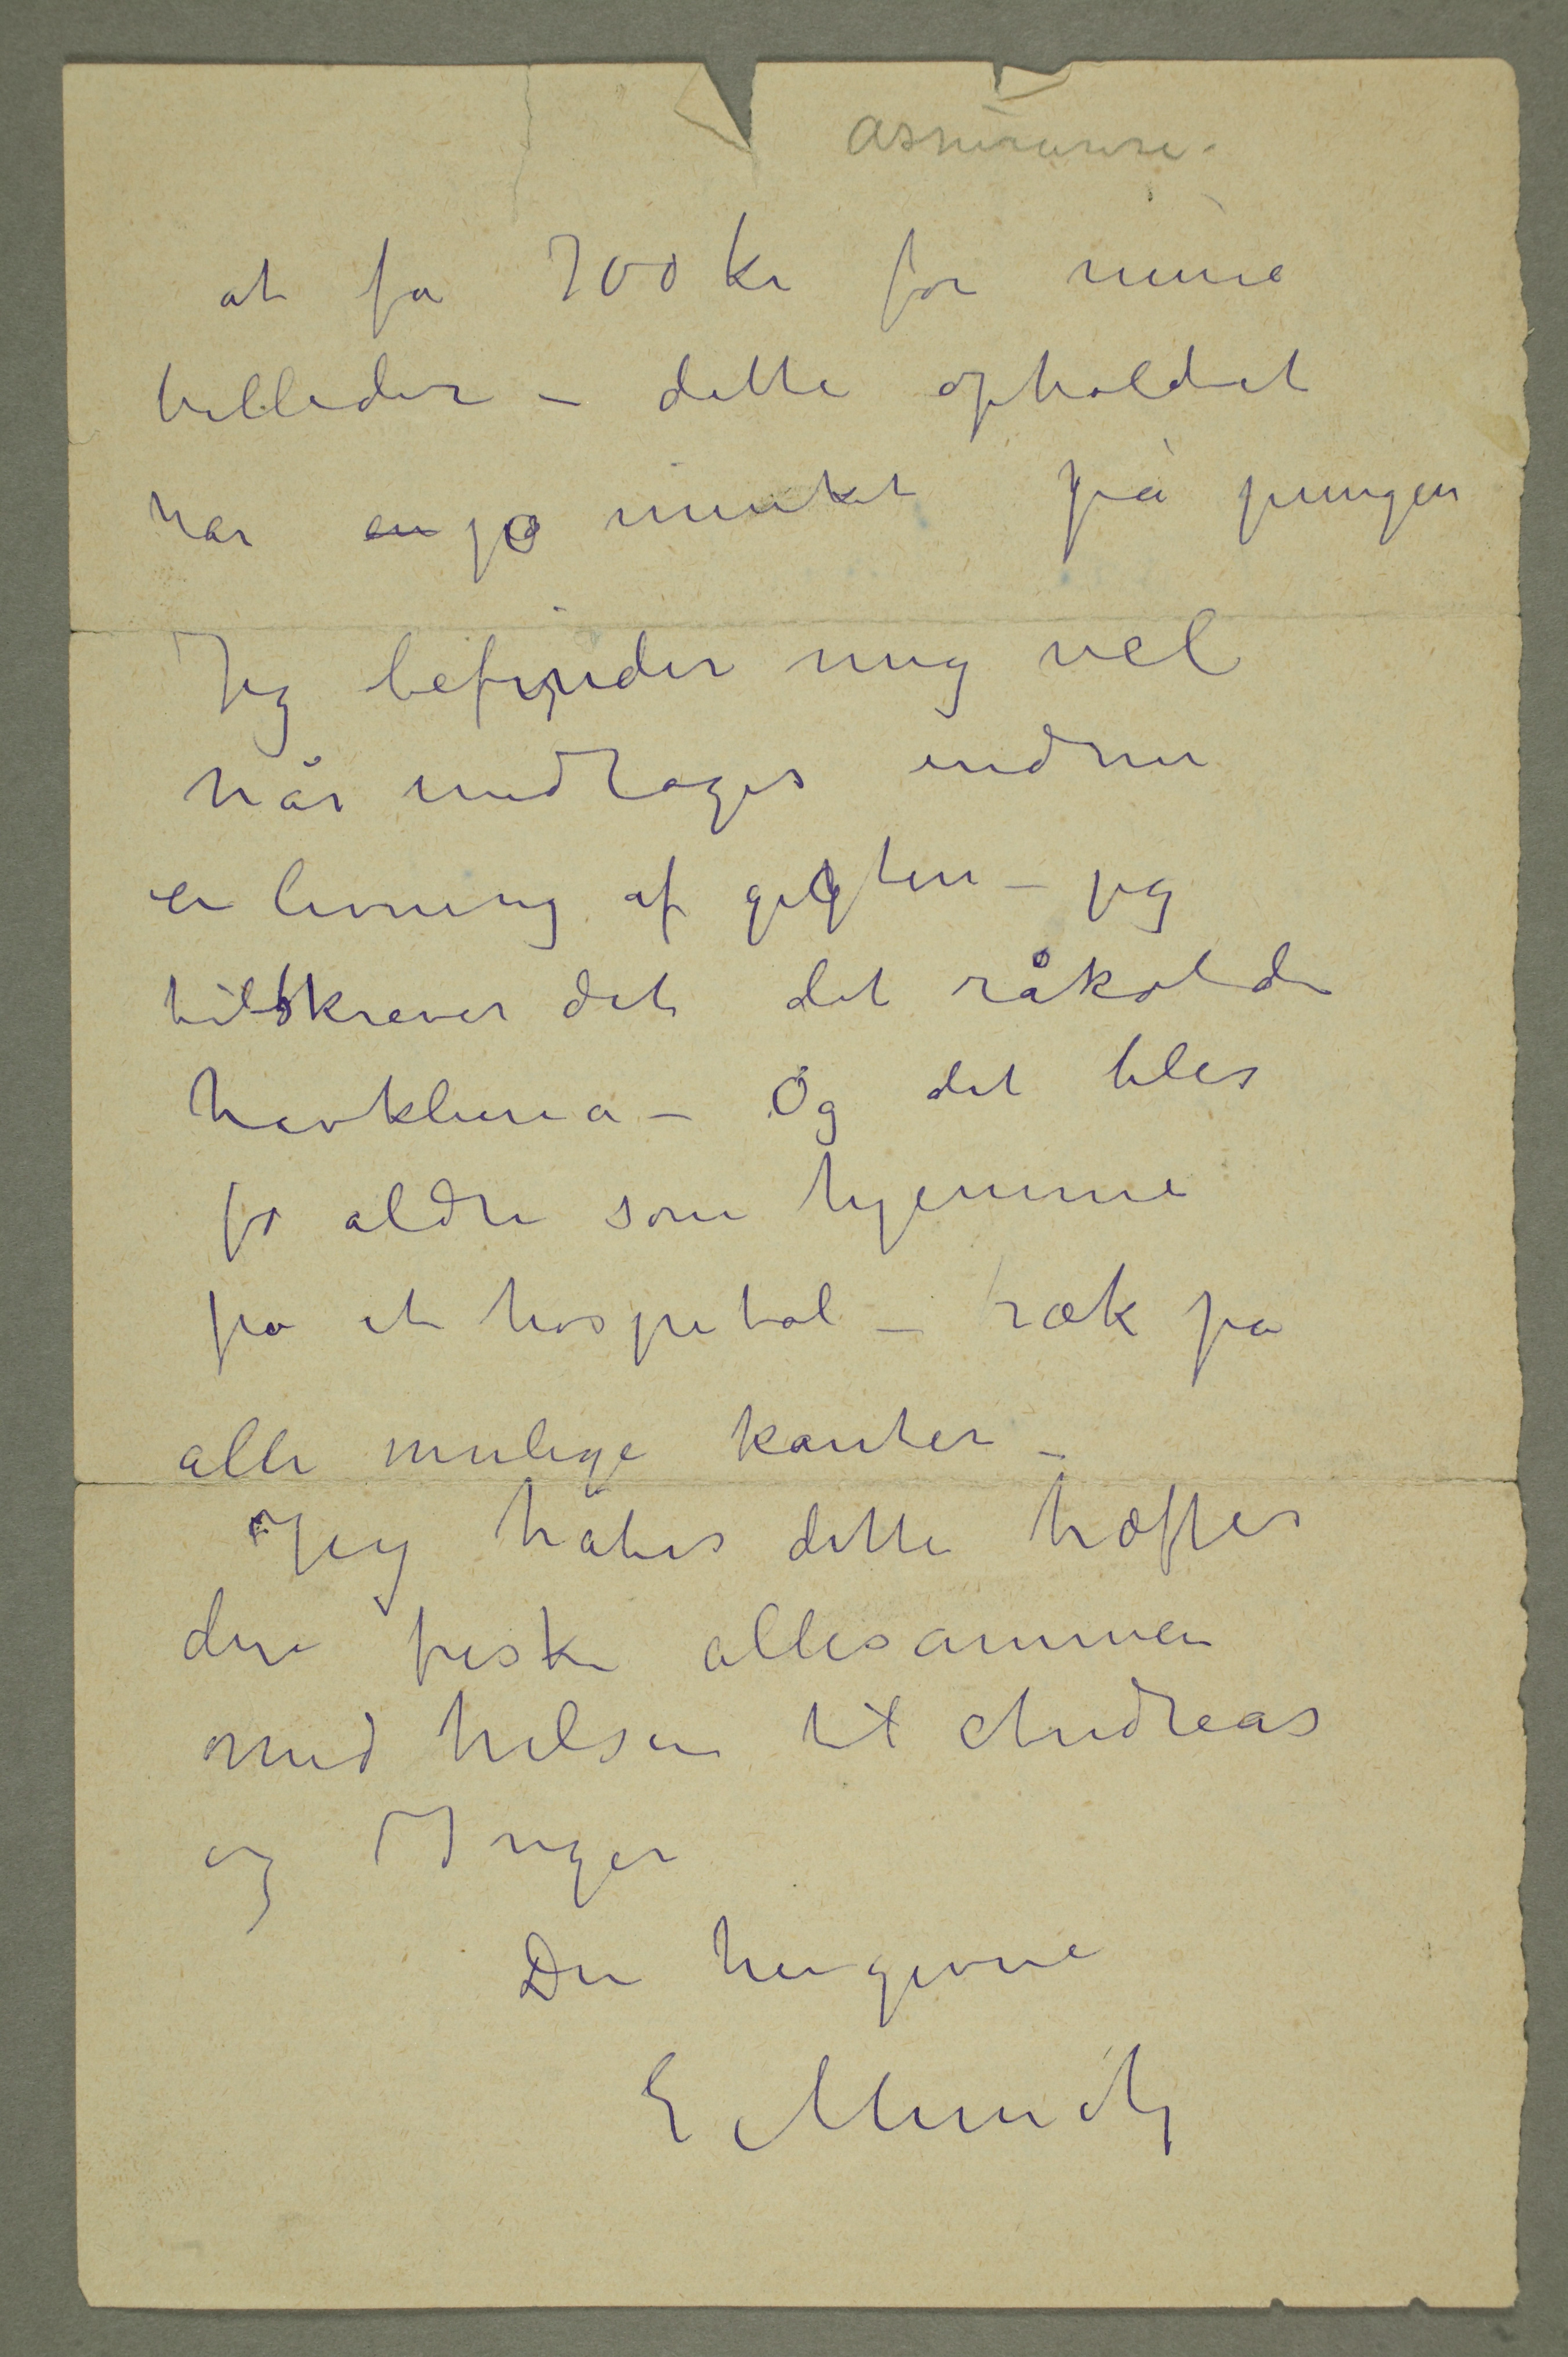 assurance.
at få 700 kr for mine
billeder – dette opholdet
har en jo minket på pungen
Jeg befinder mig vel
når undtages endnu
en levning af gigten – jeg
tilskrever det det råkolde
havklima – Og det blei
jo aldri som hjemme
på et hospital – træk på
alle mulige kanter –
Jeg håber dette træffer
dere friske allesammen
med hilsen til Andreas
og Inger
Din hengivne
E Munch